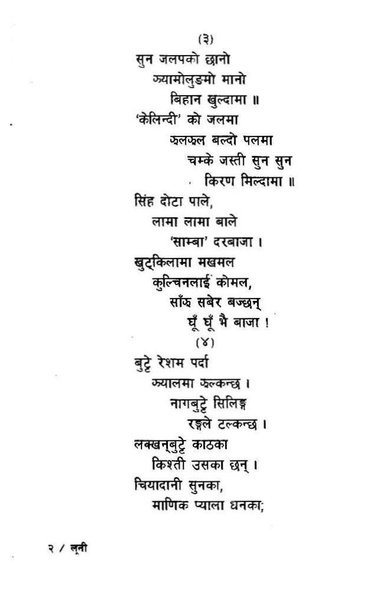 (३)
सुन जलपको छानो
झ्यामोलुङमो मानो
बिहान खुल्दामा ॥
‘केलिन्दी’ को जलमा
झलझल बल्दो पलमा
चम्के जस्ती सुन सुन
किरण मिल्दामा ॥
सिंह दोटा पाले,
लामा लामा बाले
‘साम्बा’ दरबाजा ।
खुट्किलामा मखमल
कुल्चिनलाई कोमल,
साँझ सबेर बज्छन्
घूँ घूँ भै बाजा !
(४)
बुट्टे रेशम पर्दा
झ्यालमा झल्कन्छ ।
नागबुट्टे सिलिङ्ग
रङ्गले टल्कन्छ ।
लक्खनबुट्टे काठका
किश्ती उसका छन् ।
चियादानी सुनका,
माणिक प्याला धनका;
२ / लूनी